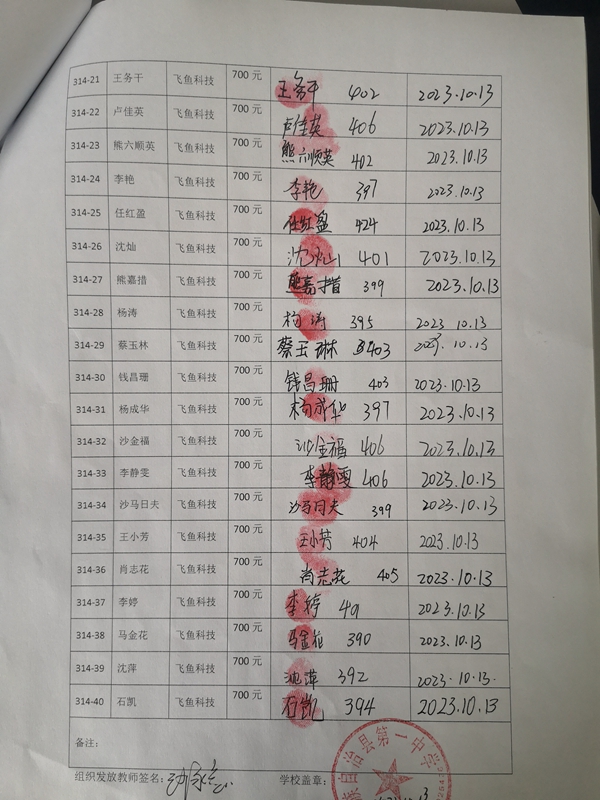 314-21 王务干 飞鱼科技 700 元 王务干 402 2023.10.13
314-22 卢佳英 飞鱼科技 700 元 卢佳英 406 2023.10.13
314-23 熊六顺英 飞鱼科技 700 元 熊六顺英 402 2023.10.13
314-24 李艳 飞鱼科技 700 元 李艳 397 2023.10.13
314-25 任红盈 飞鱼科技 700 元 任红盈 424 2023.10.13
314-26 沈灿 飞鱼科技 700 元 沈灿 401 2023.10.13
314-27 熊嘉措 飞鱼科技 700 元 熊嘉措 399 2023.10.13
314-28 杨涛 飞鱼科技 700 元 杨涛 395 2023 10.13
314-29 蔡玉林 飞鱼科技 700 元 蔡玉琳 403 2023.10.13
314-30 钱昌珊 飞鱼科技 700 元 钱昌珊 403 2023.10.13
314-31 杨成华 飞鱼科技 700 元 杨成华 397 2023.10.13
314-32 沙金福 飞鱼科技 700 元 沙金福 406 2023.10.13
314-33 李静雯 飞鱼科技 700 元 李静雯 406 2023.10.13
314-34 沙马日夫 飞鱼科技 700 元 沙马日夫 399 2023.10.13
314-35 王小芳 飞鱼科技 700 元 王小芳 404 2023.10.13
314-36 肖志花 飞鱼科技 700 元 肖志花 405 2023.10.13
314-37 李婷 飞鱼科技 700 元 李婷 2023.10.13
314-38 马金花 飞鱼科技 700 元 马金花 390 2023.10.13
314-39 沈萍 飞鱼科技 700 元 沈萍 392 2023.10.13.
314-40 石凯 飞鱼科技 700 元 石凯 394 2023.10.13
备注：
组织发放教师签名： 学校盖章：
族自治县第一中学